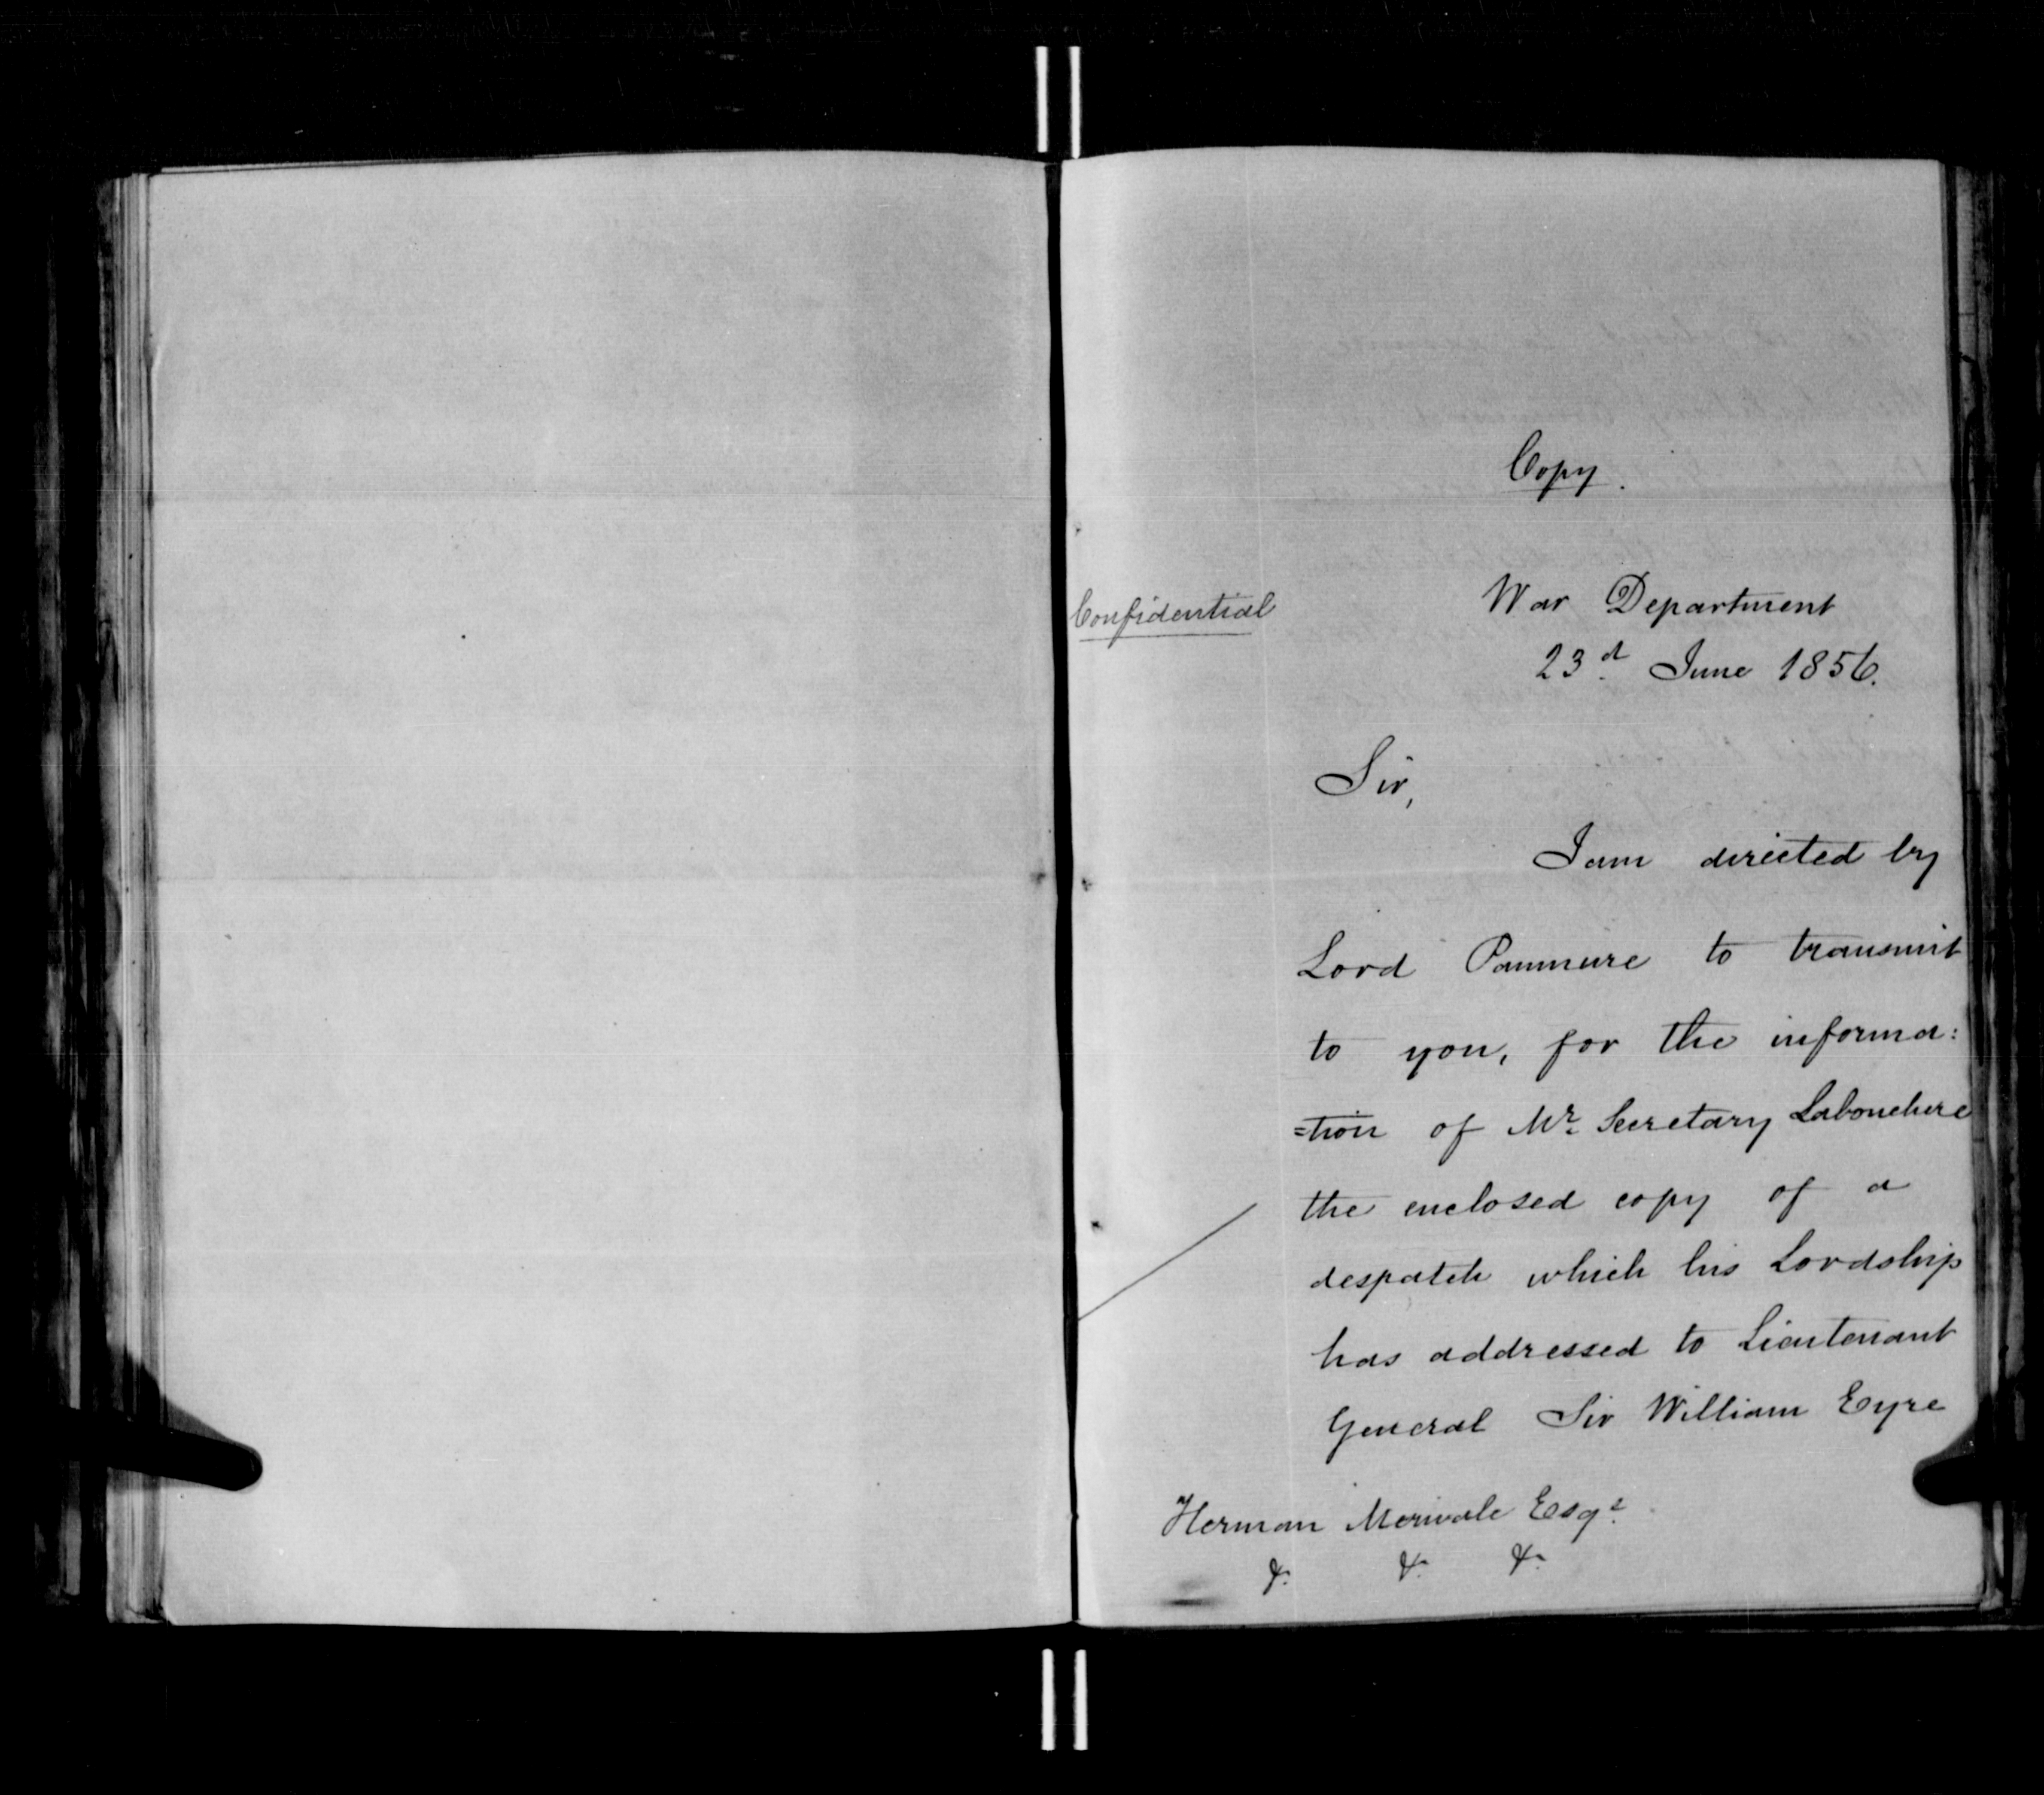 Copy.
Confidential
War Department
23d. June 1856.
Sir,
I am directed by
Lord Panmure to transmit
to you, for the informa:
=tion of Mr. Secretary Labouchere
the enclosed copy of a
despatch which his Lordship
has addressed to Lieutenant
General Sir William Eyre
Herman Merivale Esqr.
&. &. &.